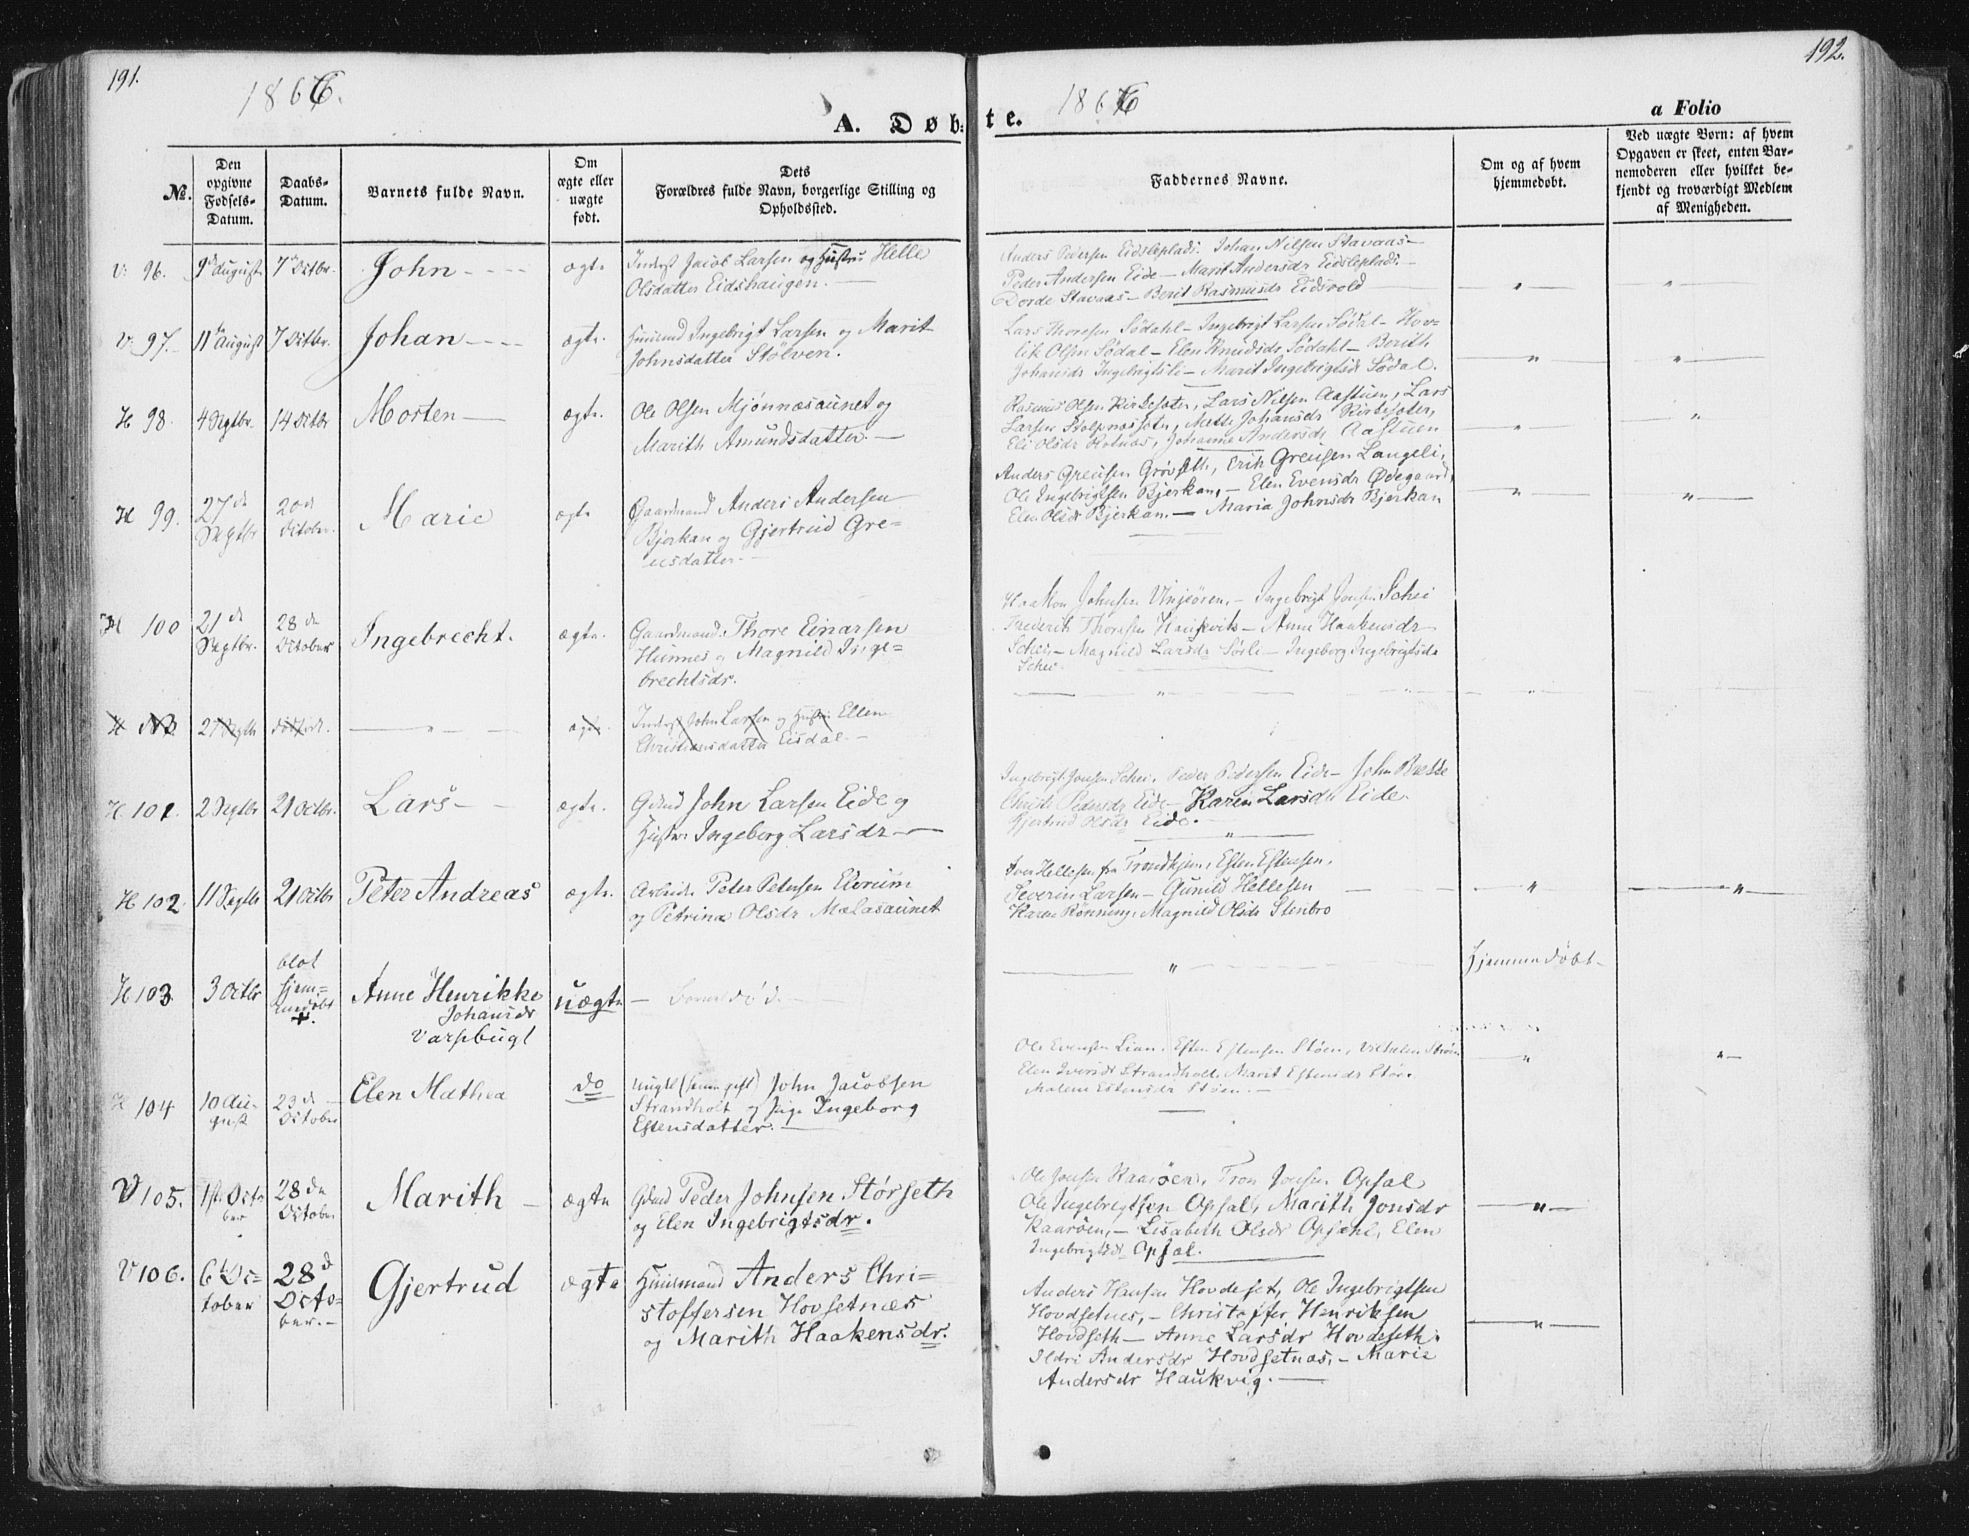 191.
1866.
A. Døb=
№.
Den opgivne Fødsels-Datum.
Daabs-Datum.
Barnets fulde Navn.
Om ægte eller uægte født.
Dets Forældres fulde Navn, borgerlige Stilling og Opholdssted.
V. 96. 9d August 7 Octbr. John ægte Inderst Jacob Larsen og Hustru Helle
Olsdatter Eidshaugen.
V. 97. 11 August 7 Octbr. Johan ægte. Huusmd Ingebrigt Larsen og Marit
Johnsdatter Stölven.
H 98. 4 Septbr. 14 Octbr Morten ægte. Ole Olsen Mjönnæsaunet og
Marith Amundsdatter
H 99. 27de Septbr 20d October. Marie ægte Gaardmand Anders Andersen
Bjerkan og Gjertrud Gre=
usdatter
H 100 21de Septbr. 28de October Ingebrecht. ægte. Gaardmand Thore Einarsen
Hunnes og Magnild Inge=
brechtsdr.
ægte. Inderst John Larsen og Hustru Ellen
Christiansdatter Eisdal.
H 101. 2 Septbr 21 Octbr. Lars ægte. Gdmd John Larsen Eide og
Hustru Ingeborg Larsdr
H 102 11 Septbr 21 Octbr Peter Andreas ægte. Arbeider Peter Petersen Elvrum
og Petrina Olsdr Melasaunet
H 103. 3 Octbr blot hjem=medøbt +. Anne Henrikke
Johansdr
Varpbugt uægte
104 10 August 23d October Elen Mathea do Ungkl John Jacobsen
Strandholt og Pige Ingeborg
Estensdatter.
V 105. 1st October 28de October Marith ægte Gdmd Peder Johnsen Størseth
og Elen Ingebrigtsdr.
V 106. 6 October 28d October. Gjertrud ægte Huusmand Anders Chri=
stoffersen Hovsetnæs
og Marith Haakensdr.
192.
1866
te.
a Folio
Faddernes Navne.
Om og af hvem hjemmedøbt.
Ved uægte Børn: af hvem Opgaven er skeet, enten Barnemoderen eller hvilket bekjendt og troværdigt Medlem af Menigheden.
Anders Pedersen Eidsleplads. Johan Nilsen Stavaas
Peder Andersen Eide — Marit Andersdr Eidsleplads.
Dorde Stavaas — Berit Rasmusdr Eidsvold
Lars Thoresen Södahl — Ingebrigt Larsen Södal
Olsen Södal — Elen Knudsdr Södahl — Berith
Johansdr Ingebrigtsli — Marit Ingebrigtsdr Södal.
Rasmus Olsen Kirkesæter, Lars Nilsen Aastuen, Lars
Larsen Stolpnessæter, Mette Johansdr Kirkesæter,
Eli Olsdr, Johanne Andersdr Aastuen
Anders Greusen Grövseth, Erik Greusen Langeli,
Ole Ingebrigtsen Bjerkan, — Elen Evensdr Ødegaard,
Elen Olsdr Bjerkan. — Maria Johnsdr Bjerkan
Haakon Johnsen Vinjeören, — Ingebrigt Jonsen Schei
Frederik Thoresen Haukvik — Anne Haakensdr
Schei, — Magnild Larsdr — Ingeborg Ingebrigtsdr
Schei.
Ingebrigt Jonsen Schei. Peder Pedersen Eide — John
Pedersdr Eide — Karen Larsdr Eide.
Gjertrud Olsdr Eide.
Iver Hellesen fra Trondhjem, Esten Estensen,
Severin Larsen — Gunild Hellesen
Karen Rønning, Magnild Olsdr Stenbro
Hjemmedøbt
Ole Evensen Lian. Esten Estensen Støen, Vilhelm Støen
Elen Iversdr Strandholt. Marit Estensdr Støe.
Malene Estensdr Støen.
Ole Jonsen Kaarøen, Tron Jonsen Opsal
Ole Ingebrigtsen Opsal, Marith Jonsdr
Kaarøen, — Lisabeth Olsdr Opsahl, Elen
Ingebrigtsdr Opsal.
Anders Hansen Hovdeset, Ole Ingebrigtsen
Hovdsetnes, — Christoffer Henriksen
Hovdseth — Anne Larsdr Hovdeseth.
Ildri Andersdr Hovdsetnæs, — Marie
Andersdr Haukvig.